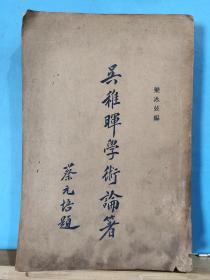 梁冰弦編
吳稚暉學術論著
蔡元培題